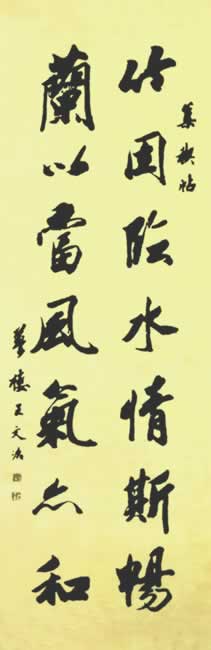 集禊帖
竹因臨水情斯暢
蘭以當風氣亦和
夢樓王文治